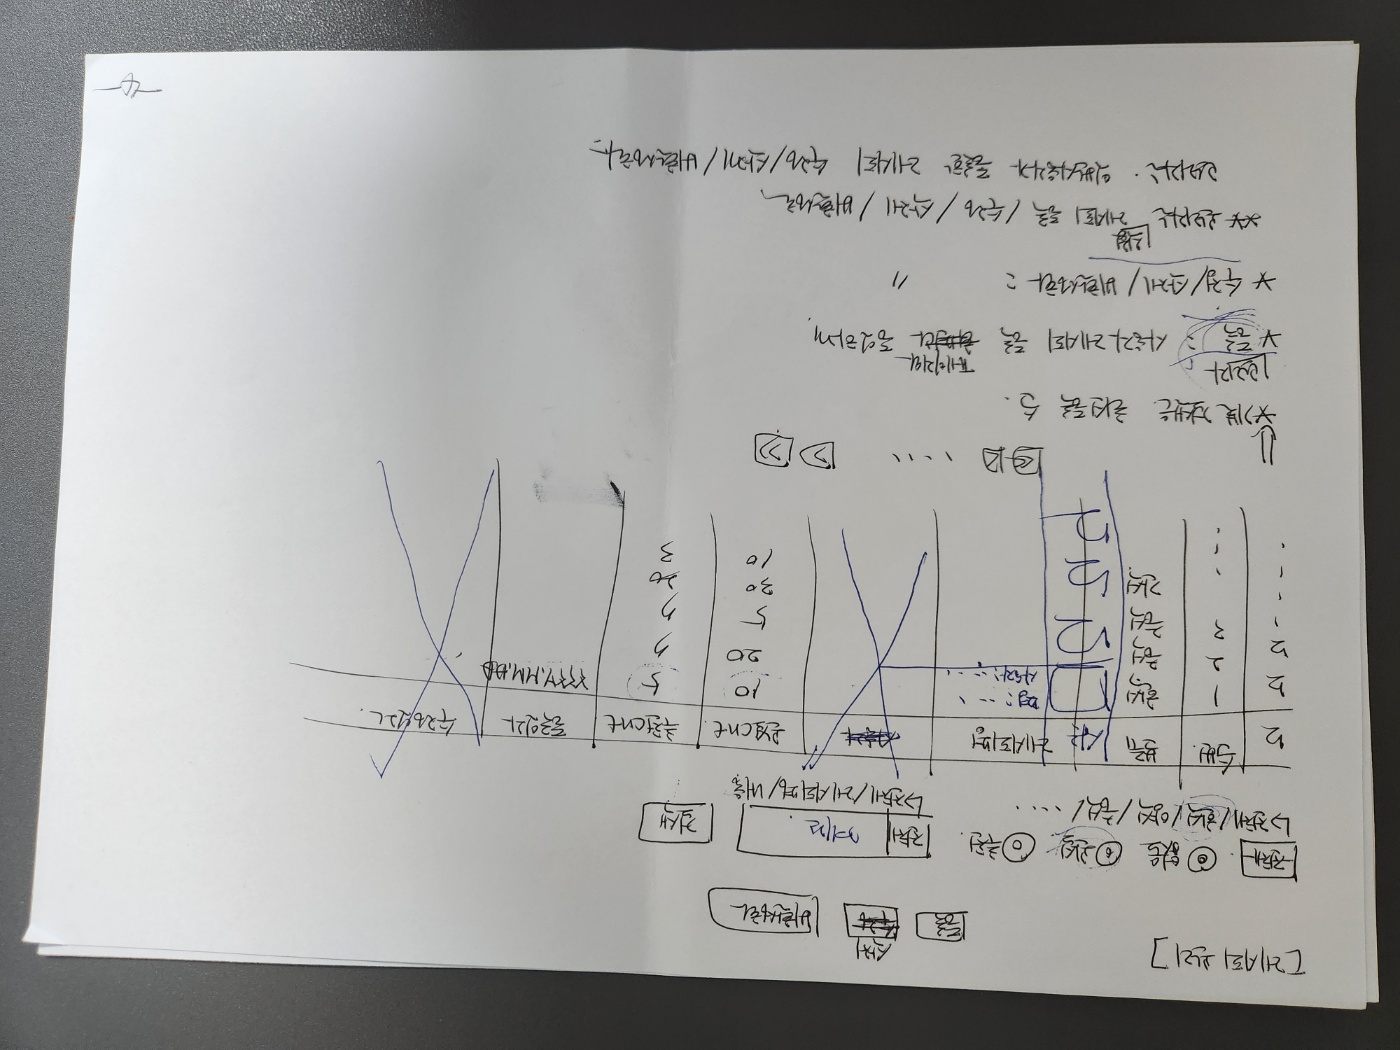 [레시피 관리]
삭제
등록 수정 비활성화
전체 없음 관심 추천 전체 계란 검색
↳전체/한식/양식/중식/....
↳전체/레시피명/내용
순번. 분류 사진 레시피명 사용자 관심cnt 추천cnt 등록일자 수정일자.
1 한식 명:.... 10 5 YYYY.MM.DD
사용자:.....
2 중식 20 7
3 중식 5 7
간식 30 20
10 3
< .... > >>
*기본 검색은 최신등록 순.
관리자 페이지와
* 등록 : 사용자 레시피 등록 동일하게.
* 수정/삭제/비활성화 : 〃
** 관리자는 직접 레시피 등록/수정/삭제/비활성화.
관리자는 일반사용자가 등록한 레시피 수정/삭제/비활성화.
-4-